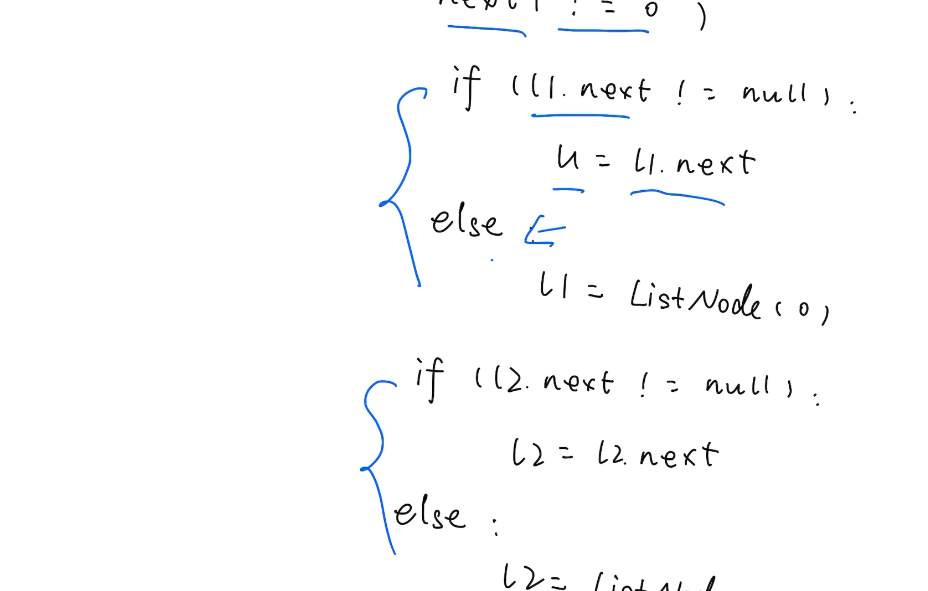 ! = 0 )
if (l1.next ! = null) :
l1 = l1.next
else
l1 = ListNode(0)
if (l2.next ! = null) :
l2 = l2.next
else :
l2 =